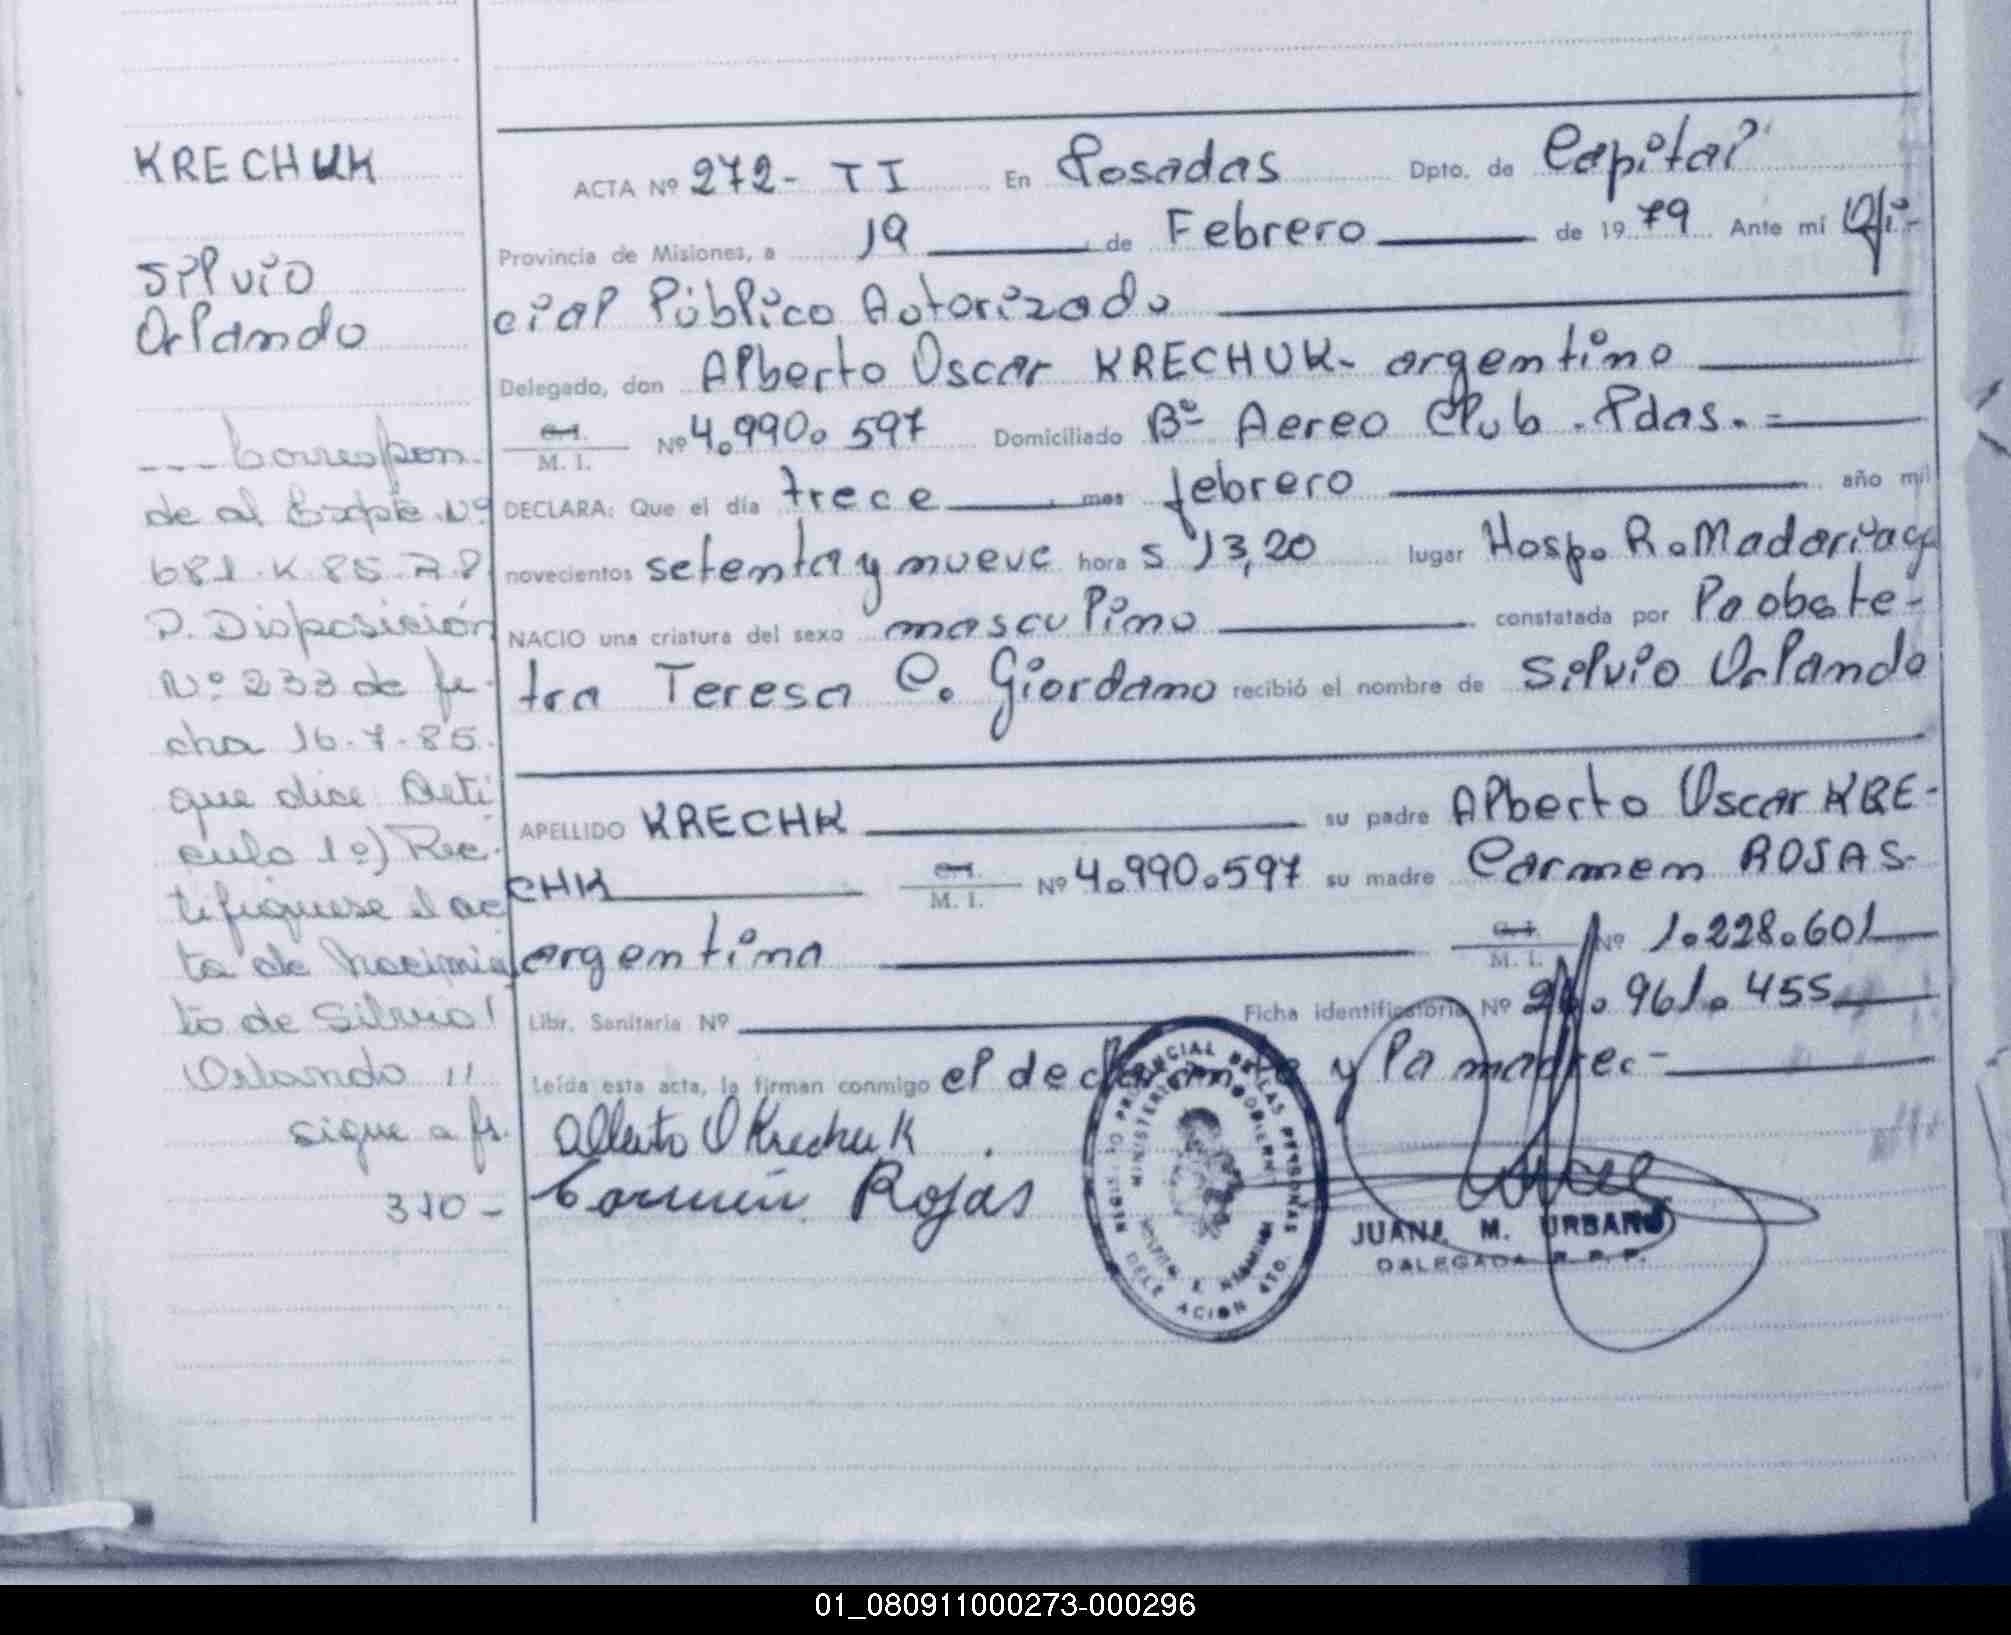 KRECHUK
Silvio
Orlando
--- Correspon-
de al Expte. Nº
681.K.85.R.P.
P. Disposición
Nº 233 de fe-
cha 16.7.85.
que dice Artí
culo 1º) Rec-
tifíquese el ac
ta de Nacimie
to de Silvio!
Orlando !!
sigue a fs.
310-
ACTA Nº 272- T I En Posadas Dpto. de Capital
Provincia de Misiones, a 19 de Febrero de 1979 Ante mí Ofi-
cial Público Autorizado
Delegado, don Alberto Oscar KRECHUK- argentino
C.I.
M. I. Nº 4.990.597 Domiciliado Bº Aereo Club. Pdas.=
DECLARA: Que el día trece mes febrero año mil
novecientos setenta y nueve hora s 13,20 lugar Hosp. R. Madariaga
NACIO una criatura del sexo masculino constatada por La obste-
tra Teresa C. Giordano recibió el nombre de Silvio Orlando
APELLIDO KRECHK su padre Alberto Oscar KRE-
CHK C.I.
M. I. Nº 4.990.597 su madre Carmen ROSAS-
argentina C.I.
M. I. Nº 1.228.601
Libr. Sanitaria Nº Ficha identificatoria Nº 26.961.455
Leída esta acta, la firman conmigo el declarante y la madre.-
Alberto O Krechuk
Carmen Rojas
REGISTRO PROVINCIAL DE LAS PERSONAS
MINISTERIO DE GOBIERNO
DELEGACION 4TO.
JUANA M. URBANO
DALEGADA R. P. P.
01_080911000273-000296